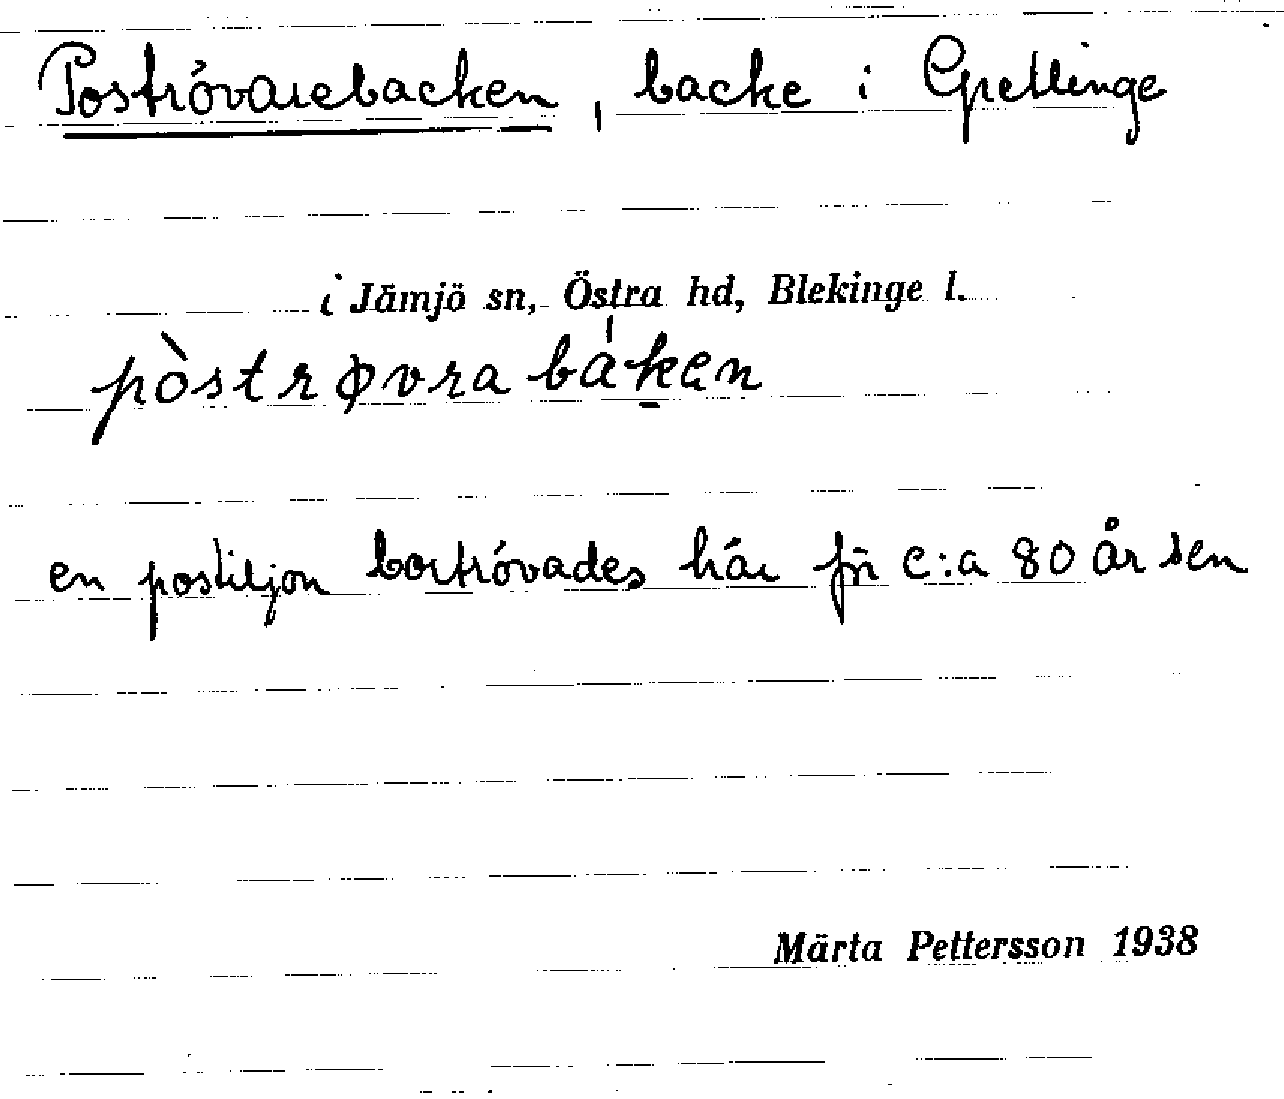 Poströvarebacken, backe i Grellinge
i Jämjö sn, Östra hd, Blekinge l.
pòstrøvrabáken
en postiljon bortrövades här för c:a 80 år sen
Märta Pettersson 1938